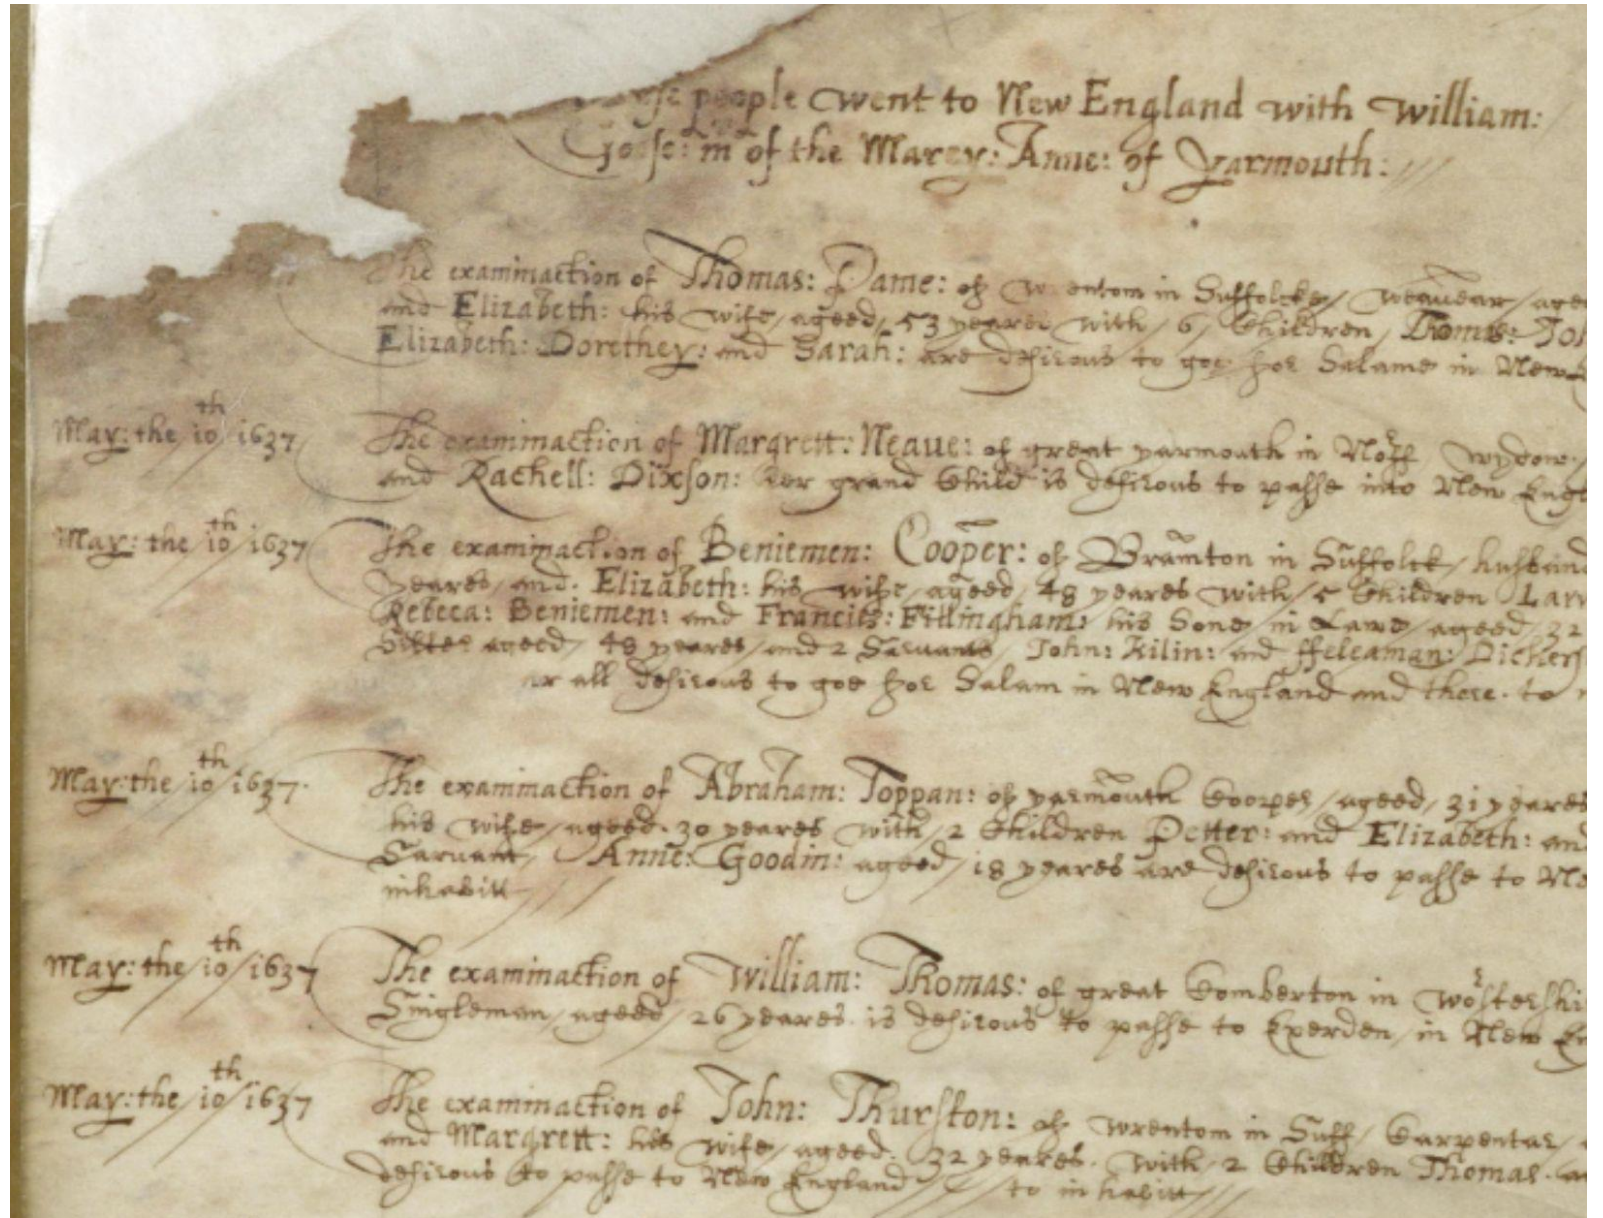 people went to New England with William:
Goose: m of the Marey: Anne: of Yarmouth:
The examinaction of Thomas: Pame: of wrentom in Suffolcke / weauear / aged
and Elizabeth: his wife / ageed / 53 yeares with / 6 / Children / Thomas:
Elizabeth: Dorethey: and Sarah: are desirous to goe for Salame in New
May: the / 10th / 1637 The examinaction of Margrett: Neaue: of great yarmouth in Norff wydow /
and Rachell: Dixson: her grand Child is desirous to passe into New Engl
May: the / 10th / 1637 The examinaction of Beniemen: Cooper: of Bramton in Suffolck / husband
yeares / and: Elizabeth: his wife / ageed / 48 yeares with / 5 Children Law
Rebeca: Beniemen: and Francis: Fillingham: his Sone in Lawe / ageed / 32
Sister ageed / 48 yeares / and 2 Saruants / John: Kilin: and ffeleaman: Dickers
ar all desirous to goe for Salam in New England and there to
May: the / 10th / 1637 The examinaction of Abraham: Toppan: of yarmouth Cooper / ageed / 31 yeares
his wife / ageed 30 yeares with / 2 Children Petter: and Elizabeth: and
Saruant / Anne: Goodin: ageed / 18 yeares are desirous to passe to Ne
inhabitt
May: the / 10th / 1637 The examinaction of William: Thomas: of great Comberton in Wostershi
Singleman / ageed / 26 yeares is desirous to passe to Exerden / in New En
May: the / 10th / 1637 The examinaction of John: Thurston: of wrentom in Suff / Carpentar /
and Margrett: his wife / ageed: 32 yeares with 2 Children Thomas
desirous to passe to New England to inhabitt